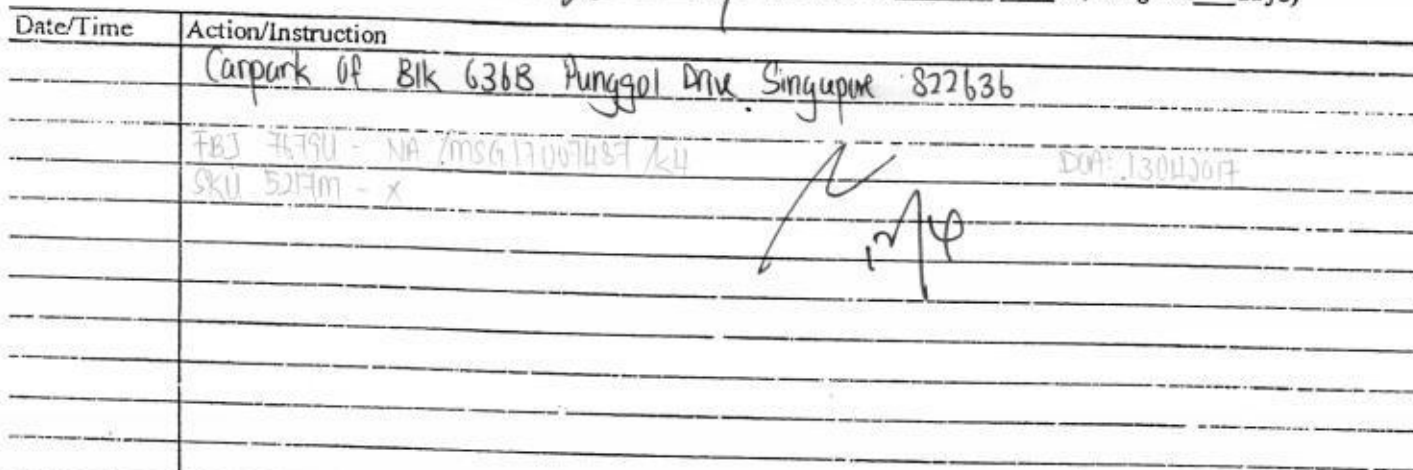 Date/Time Action/Instruction
Carpark Of Blk 636B Punggol Drive. Singapore 822636
FBJ 7679U - NA /MSG17007487 /k4 DOA: 13042017
SKU 5217M - X